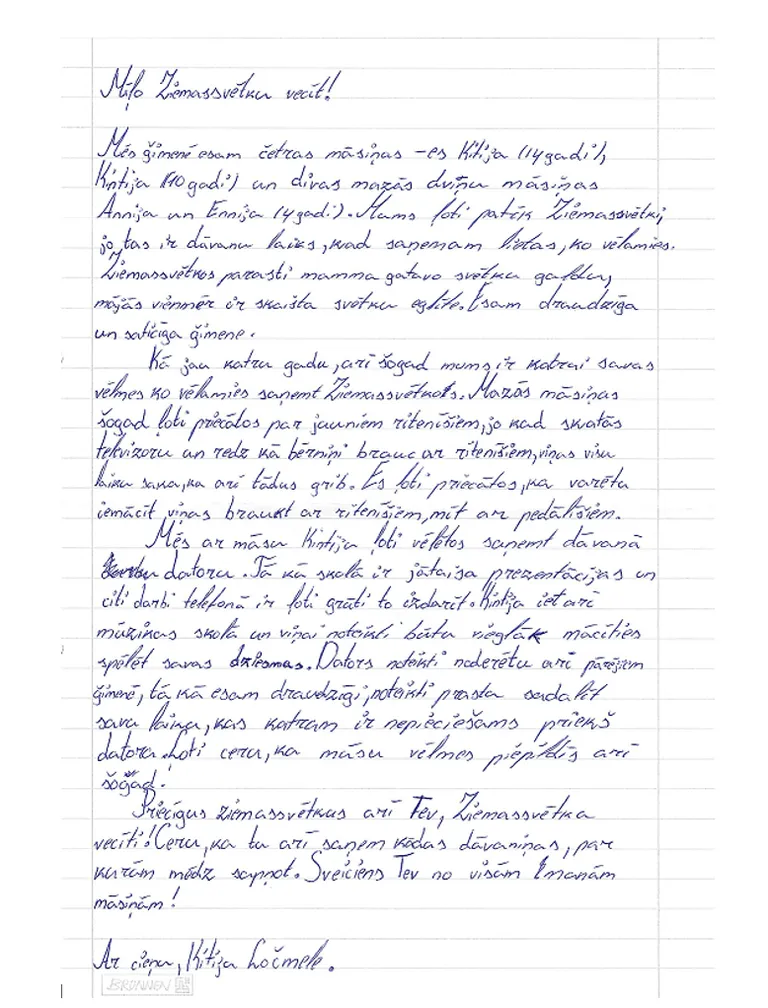 Mīļo Ziemassvētku vecīt!
Mēs ģimenē esam četras māsiņas - es Kitija (14 gadi),
Kintija (10 gadi) un divas mazās dvīņu māsiņas
Annija un Ennija (4 gadi). Mums ļoti patīk Ziemassvētki,
jo tas ir dāvanu laiks, kad saņemam lietas, ko vēlamies.
Ziemassvētkos parasti mamma gatavo svētku galdu,
mājās vienmēr ir skaista svētku eglīte. Esam draudzīga
un saticīga ģimene.
Kā jau katru gadu, arī šogad mums ir katrai savas
vēlmes ko vēlamies saņemt Ziemassvētkos. Mazās māsiņas
šogad ļoti priecātos par jauniem riteņīšiem, jo kad skatās
televizoru un redz kā bērniņi brauc ar riteņīšiem, viņas visu
laiku saka, ka arī tādus grib. Es ļoti priecātos, ka varētu
iemācīt viņas braukt ar riteņīšiem, mīt ar pedālīšiem.
Mēs ar māsu Kintiju ļoti vēlētos saņemt dāvanā
datoru. Tā kā skolā ir jātaisa prezentācijas un
citi darbi telefonā ir ļoti grūti to izdarīt. Kintija iet arī
mūzikas skolā un viņai noteikti būtu vieglāk mācīties
spēlēt savas dziesmas. Dators noteikti noderētu arī pārējiem
ģimenē, tā kā esam draudzīgi, noteikti prastu sadalīt
savu laiku, kas katram ir nepieciešams priekš
datora. Ļoti ceru, ka mūsu vēlmes piepildīs arī
šogad!
Priecīgus ziemassvētkus arī Tev, Ziemassvētku
vecīti! Ceru, ka tu arī saņem kādas dāvaniņas, par
kurām mēdz sapņot. Sveiciens Tev no visām manām
māsiņām!
Ar cieņu, Kitija Ločmele.
BRUNNEN